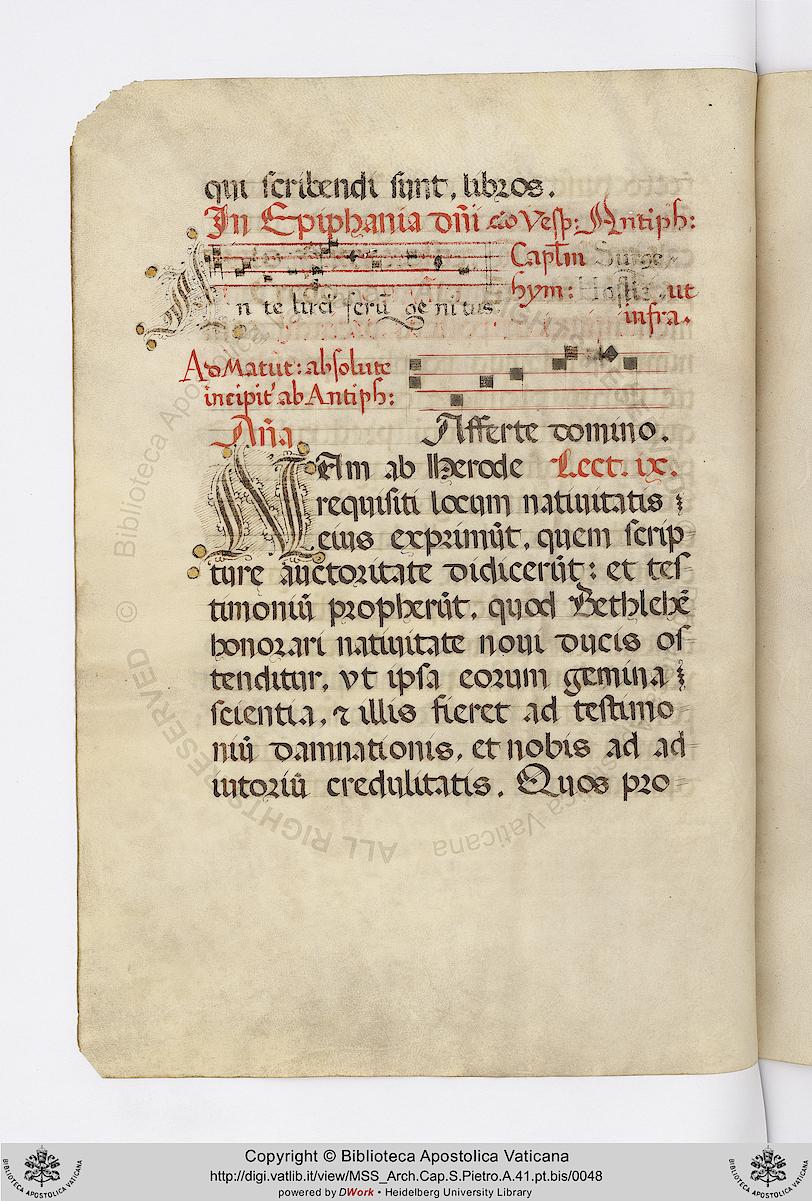 qui scribendi sunt, libros.
In Epiphania dñi ad Vesp: Antiph:
Capl̃m Surge
hym: Hostis ut
infra.
An te luci ferũ ge nitus
Ad Matut: absolute
incipit̃ ab Antiph:
Añã
Afferte domino.
NAm ab Herode Lect. ix.
requisiti locum nativitatis
eius exprimũt, quem scrip-
turę auctoritate didicerũt: et tes-
timoniũ propherũt, quod Bethlehẽ
honorari nativitate novi ducis os-
tenditur, vt ipsa eorum gemina
scientia, ⁊ illis fieret ad testimo-
niũ damnationis, et nobis ad ad-
iutoriũ credulitatis. Quos pro-
© Biblioteca Apostolica Vaticana
ALL RIGHTS RESERVED
Copyright © Biblioteca Apostolica Vaticana
http://digi.vatlib.it/view/MSS_Arch.Cap.S.Pietro.A.41.pt.bis/0048
powered by DWork • Heidelberg University Library
BIBLIOTECA APOSTOLICA VATICANA
BIBLIOTECA APOSTOLICA VATICANA